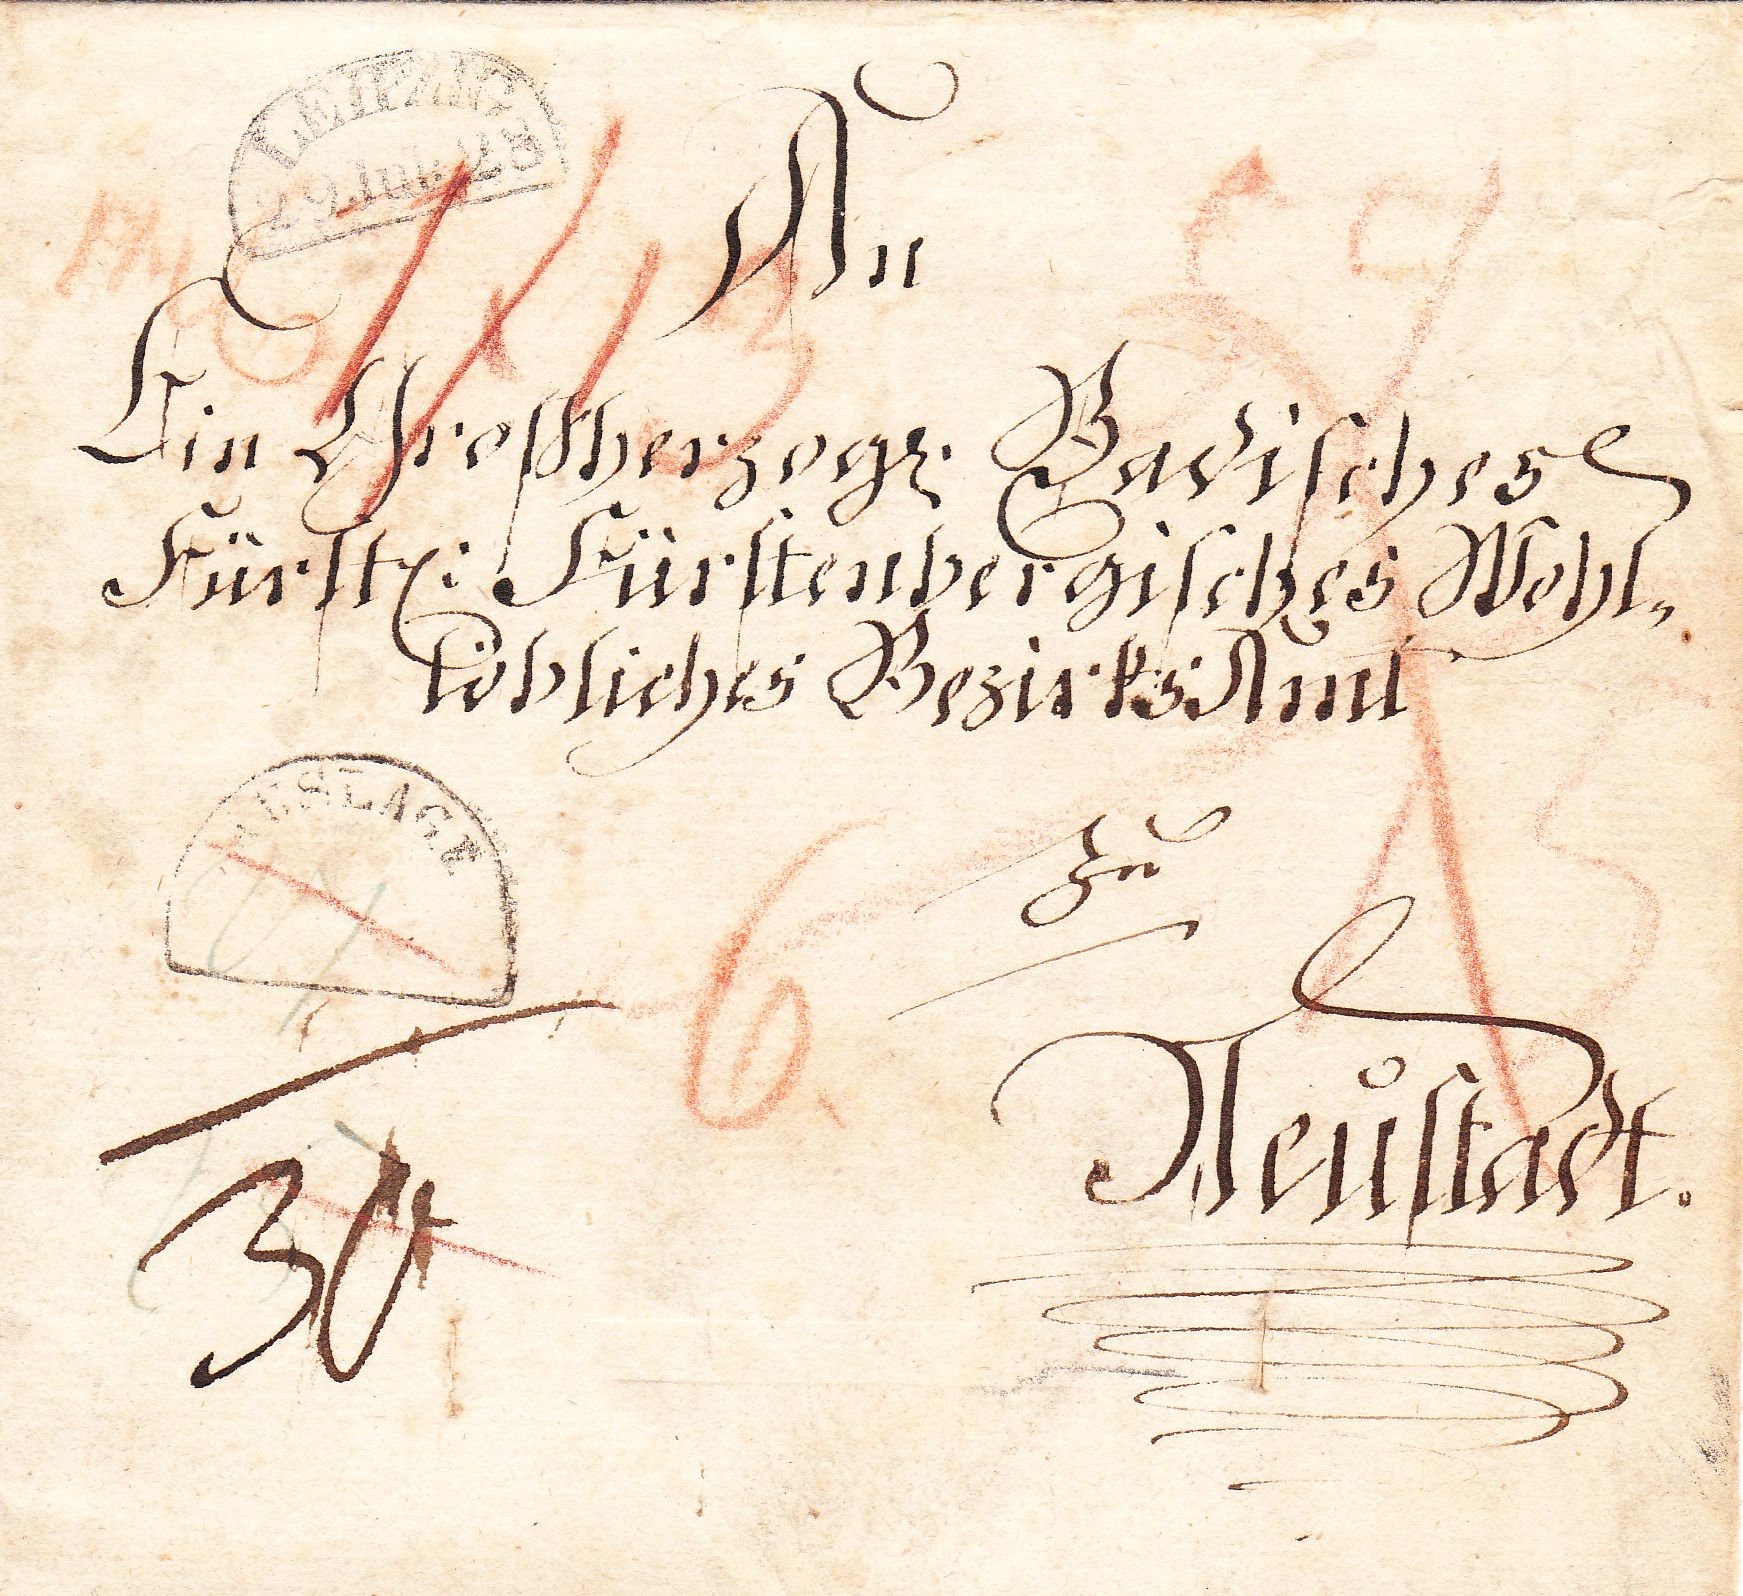 LEIPZIG
29. Jul. 28
An
Ein Großherzogl. Badisches
Fürstl: Fürstenbergisches Wohl„
löbliches Bezirks Amt
BESLAGE
zu
6.
Neustadt.
30